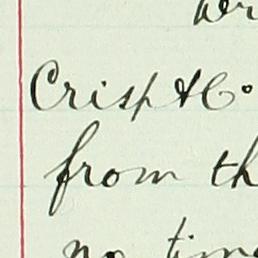 Crisp & Co
from th
no time